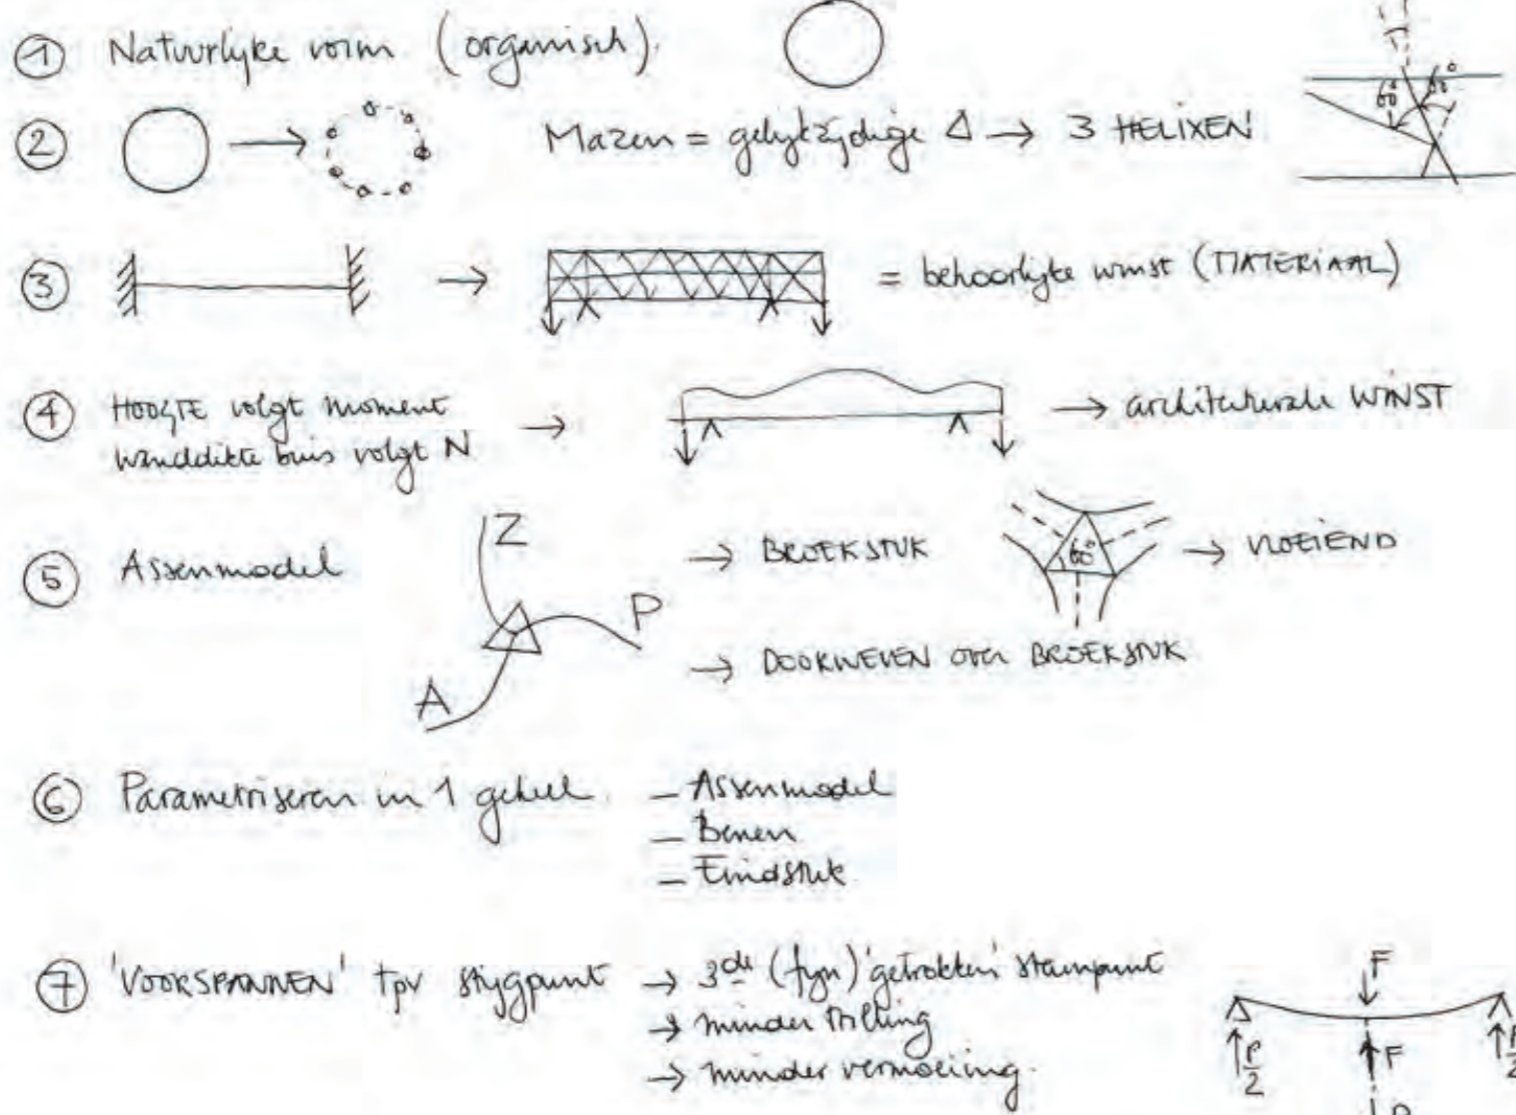 1 Natuurlyke vorm (organisch).
2 Mazen = gelykzydige Δ → 3 HELIXEN
60° 60°
3 → = behoorlyke winst (MATERIAAL)
4 HOOGTE volgt moment → → architecturale WINST
wanddikte buis volgt N
5 Assenmodel Z P A → BROEKSTUK 60° → VLOEIEND
→ DOORWEVEN over BROEKSTUK
6 Parametriseren in 1 geheel. – Assenmodel
– Benen
– Eindstuk
7 'VOORSPANNEN' tpv stygpunt → 3de (fyn) 'getrokken' steunpunt
→ minder trilling
→ minder vermoeiing.
F
P/2 F P/2